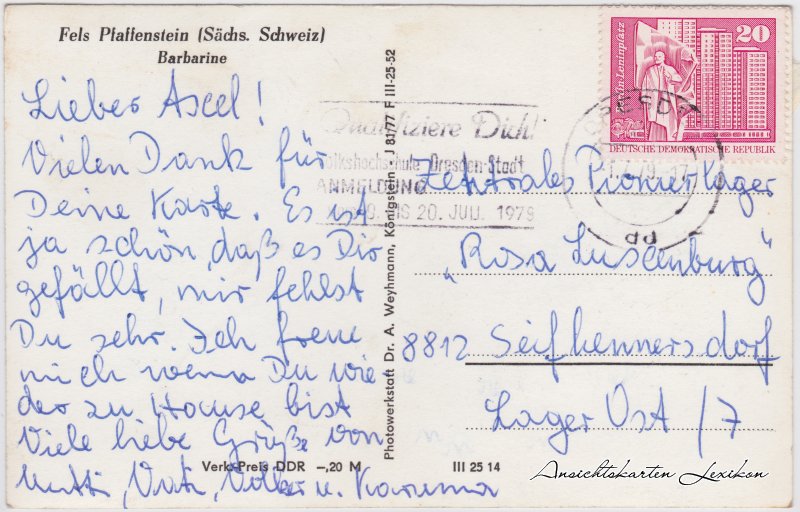 Fels Pfaffenstein (Sächs. Schweiz)
Barbarine
Lieber Axel!
Vielen Dank für
Deine Karte. Es ist
ja schön, daß es Dir
gefällt, mir fehlst
Du sehr. Ich freue
mich wenn Du wie
der zu Hause bist
Viele liebe Grüße von
Mutti, Vati, Volker u.
Verk.-Preis DDR –,20 M
Photowerkstatt Dr. A. Weyhmann, Königstein J 81/77 F III-25-52
III 25 14
Qualifiziere Dich!
Volkshochschule Dresden-Stadt
ANMELDUNG
BIS 20. JULI 1979
20
Leninplatz
DEUTSCHE DEMOKRATISCHE REPUBLIK
DRESDEN
79-17
dd
Zentrales Pionierlager
„Rosa Luxemburg"
8812 Seifhennersdorf
Lager Ost /7
Ansichtskarten Lexikon